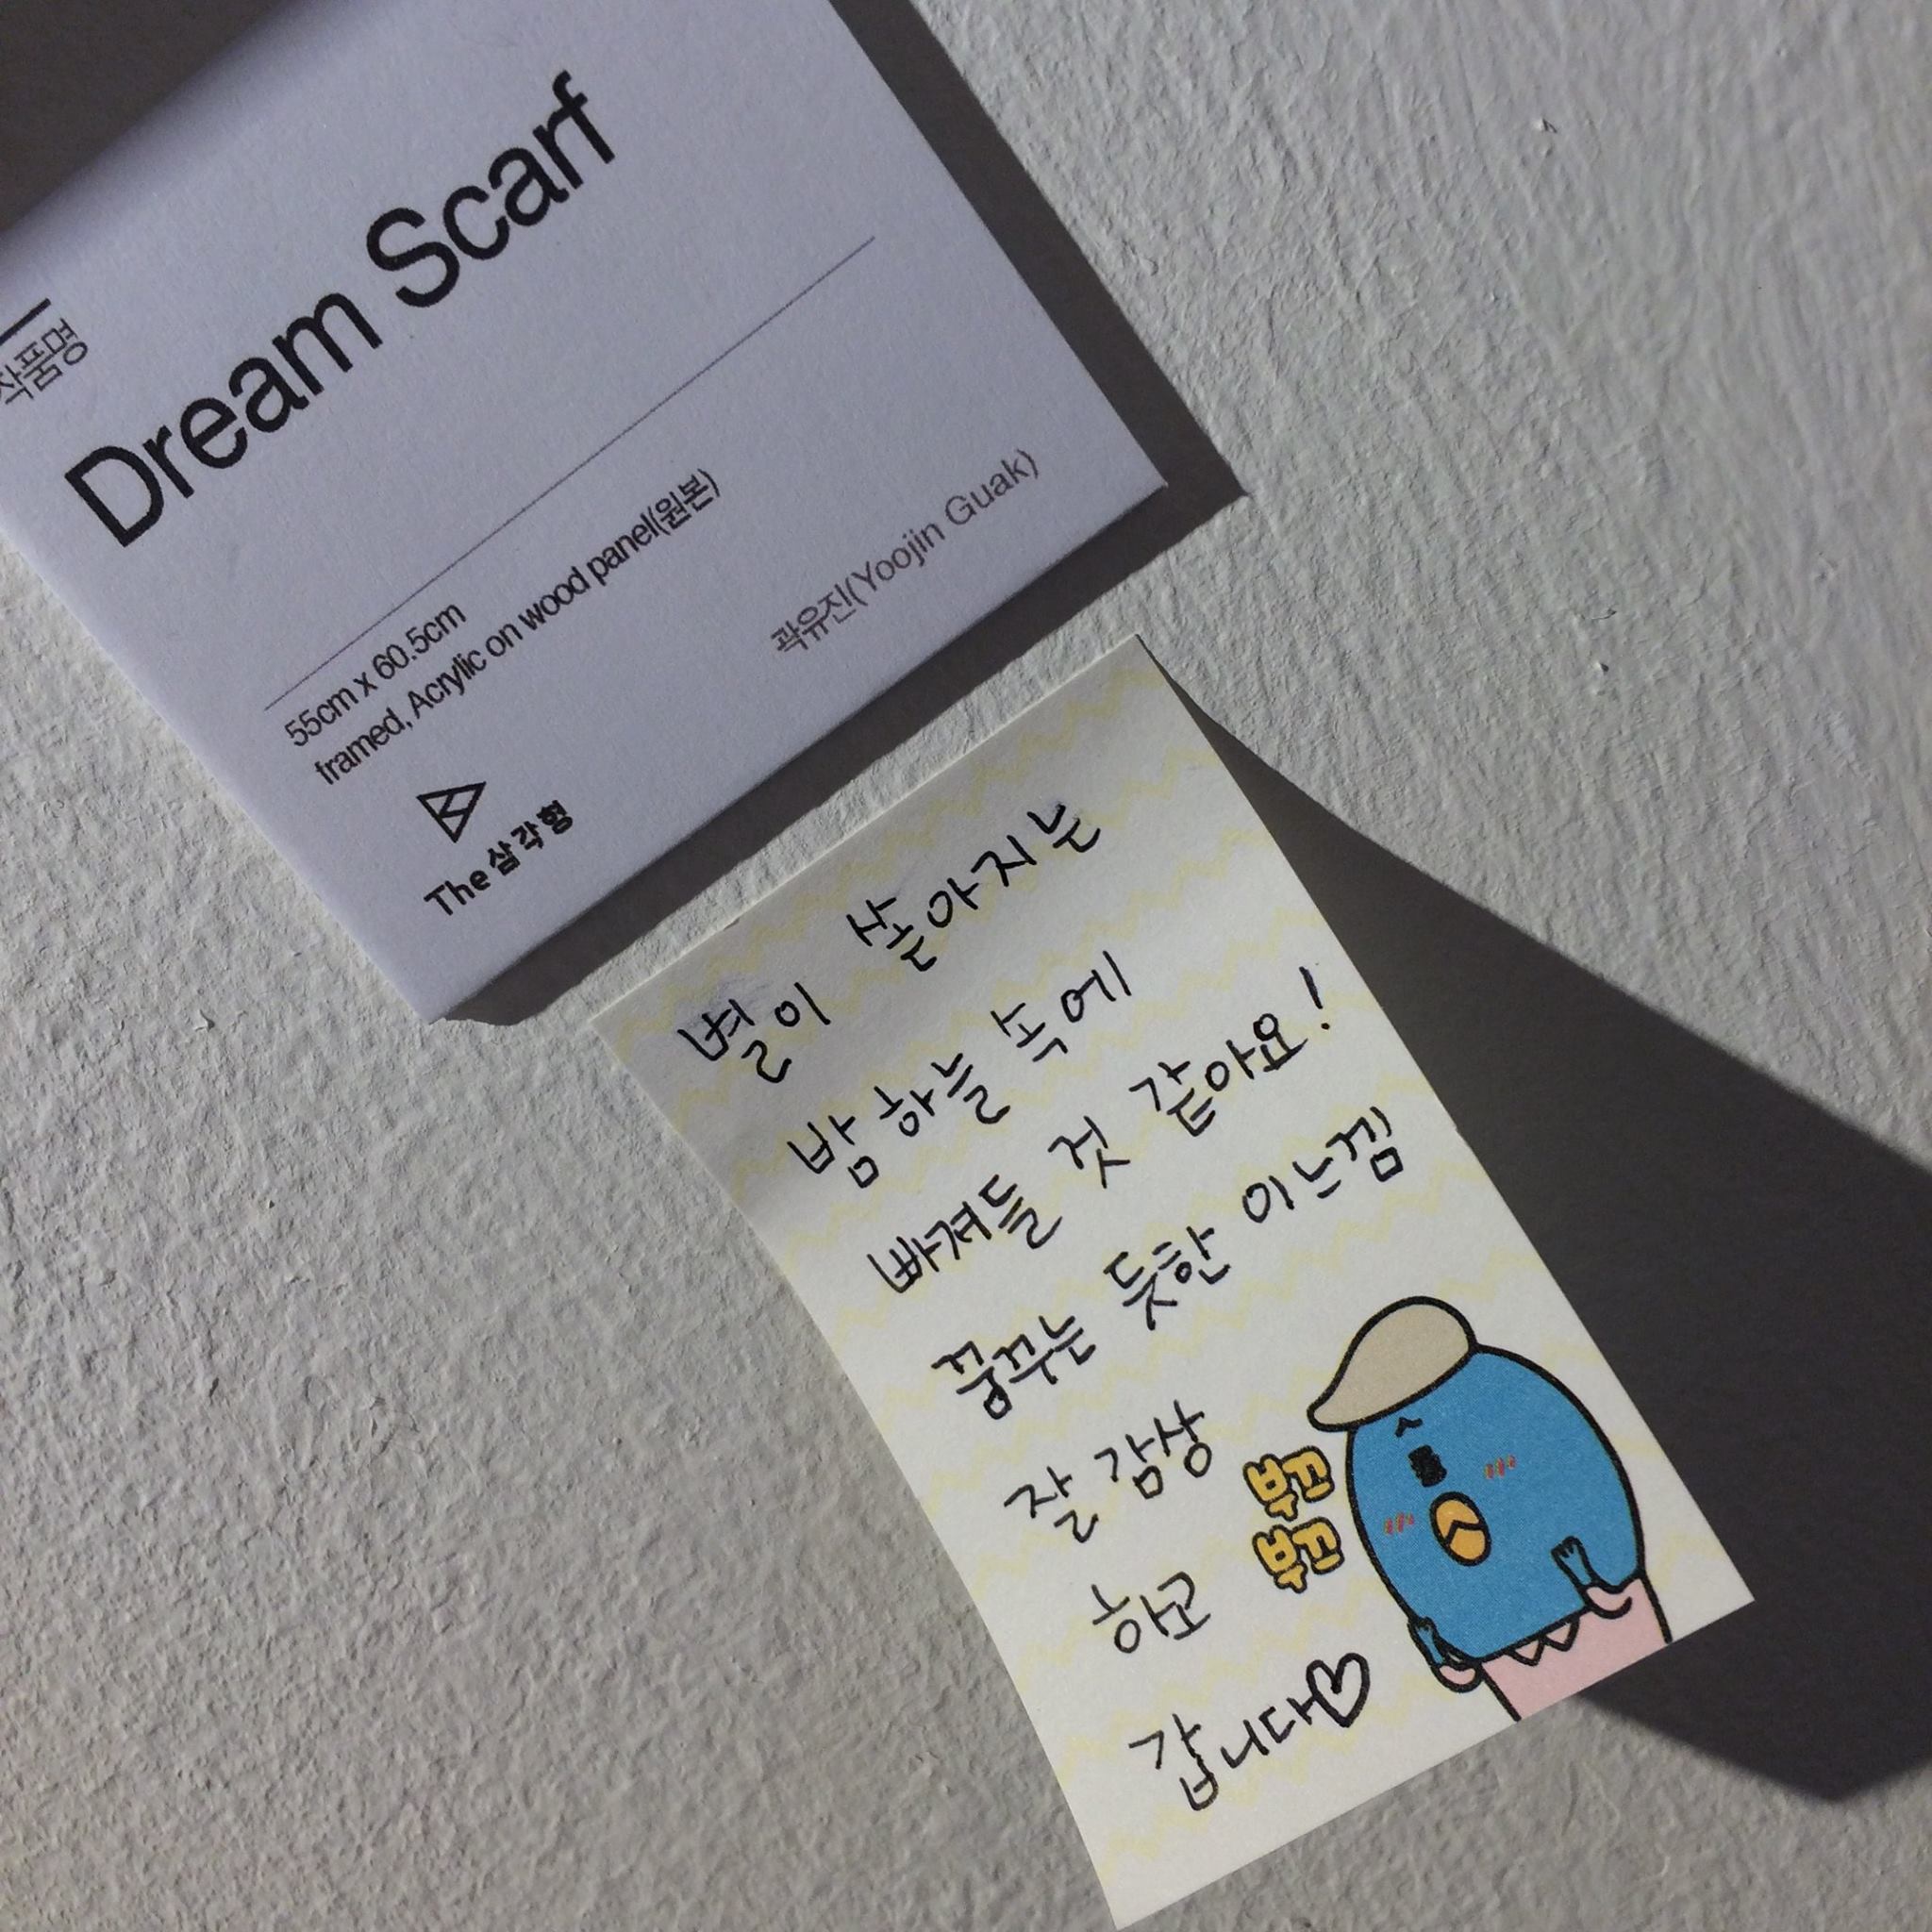 작품명
Dream Scarf
55cm x 60.5cm
framed, Acrylic on wood panel(원본)
곽유진(Yoojin Guak)
The삼각형
별이 쏟아지는
밤 하늘 속에
빠져들 것 같아요!
꿈꾸는 듯한 이 느낌
잘 감상
하고
갑니다♡